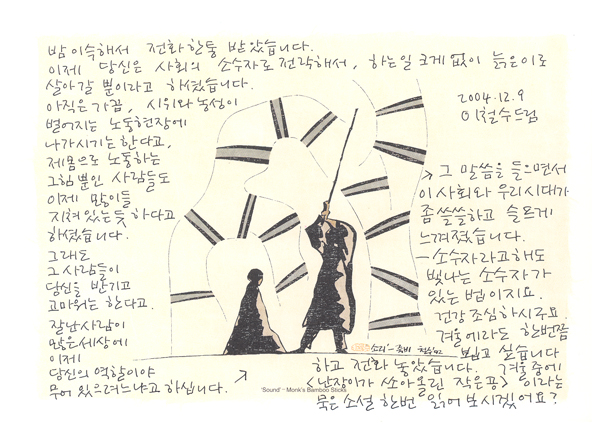 밤 이슥해서 전화 한통 받았습니다.
이제 당신은 사회의 소수자로 전락해서, 하는일 크게 없이 늙은이로
살아갈 뿐이라고 하셨습니다.
아직은 가끔, 시위와 농성이
벌어지는 노동현장에
나가시기는 한다고,
제몸으로 노동하는
그힘뿐인 사람들도
이제 많이들
지쳐있는듯 하다고
하셨습니다.
그래도
그 사람들이
당신을 반기고
고마워는 한다고.
잘난사람이
많은세상에
이제
당신의 역할이야
무어 있으려느냐고 하십니다. ↗
2004.12.9
이철수드림
→ 그 말씀을 들으면서
이 사회와 우리시대가
좀 쓸쓸하고 슬프게
느껴졌습니다.
— 소수자라고해도
빛나는 소수자가
있는 법이지요.
건강 조심하시구요.
겨울에라도 한번쯤
뵙고 싶습니다
하고 전화 놓았습니다. 겨울중에
<난장이가 쏘아올린 작은공> 이라는
묵은 소설 한번 읽어 보시겠어요?
소리 - 죽비 철수 '92
'Sound' - Monk's Bamboo Sticks